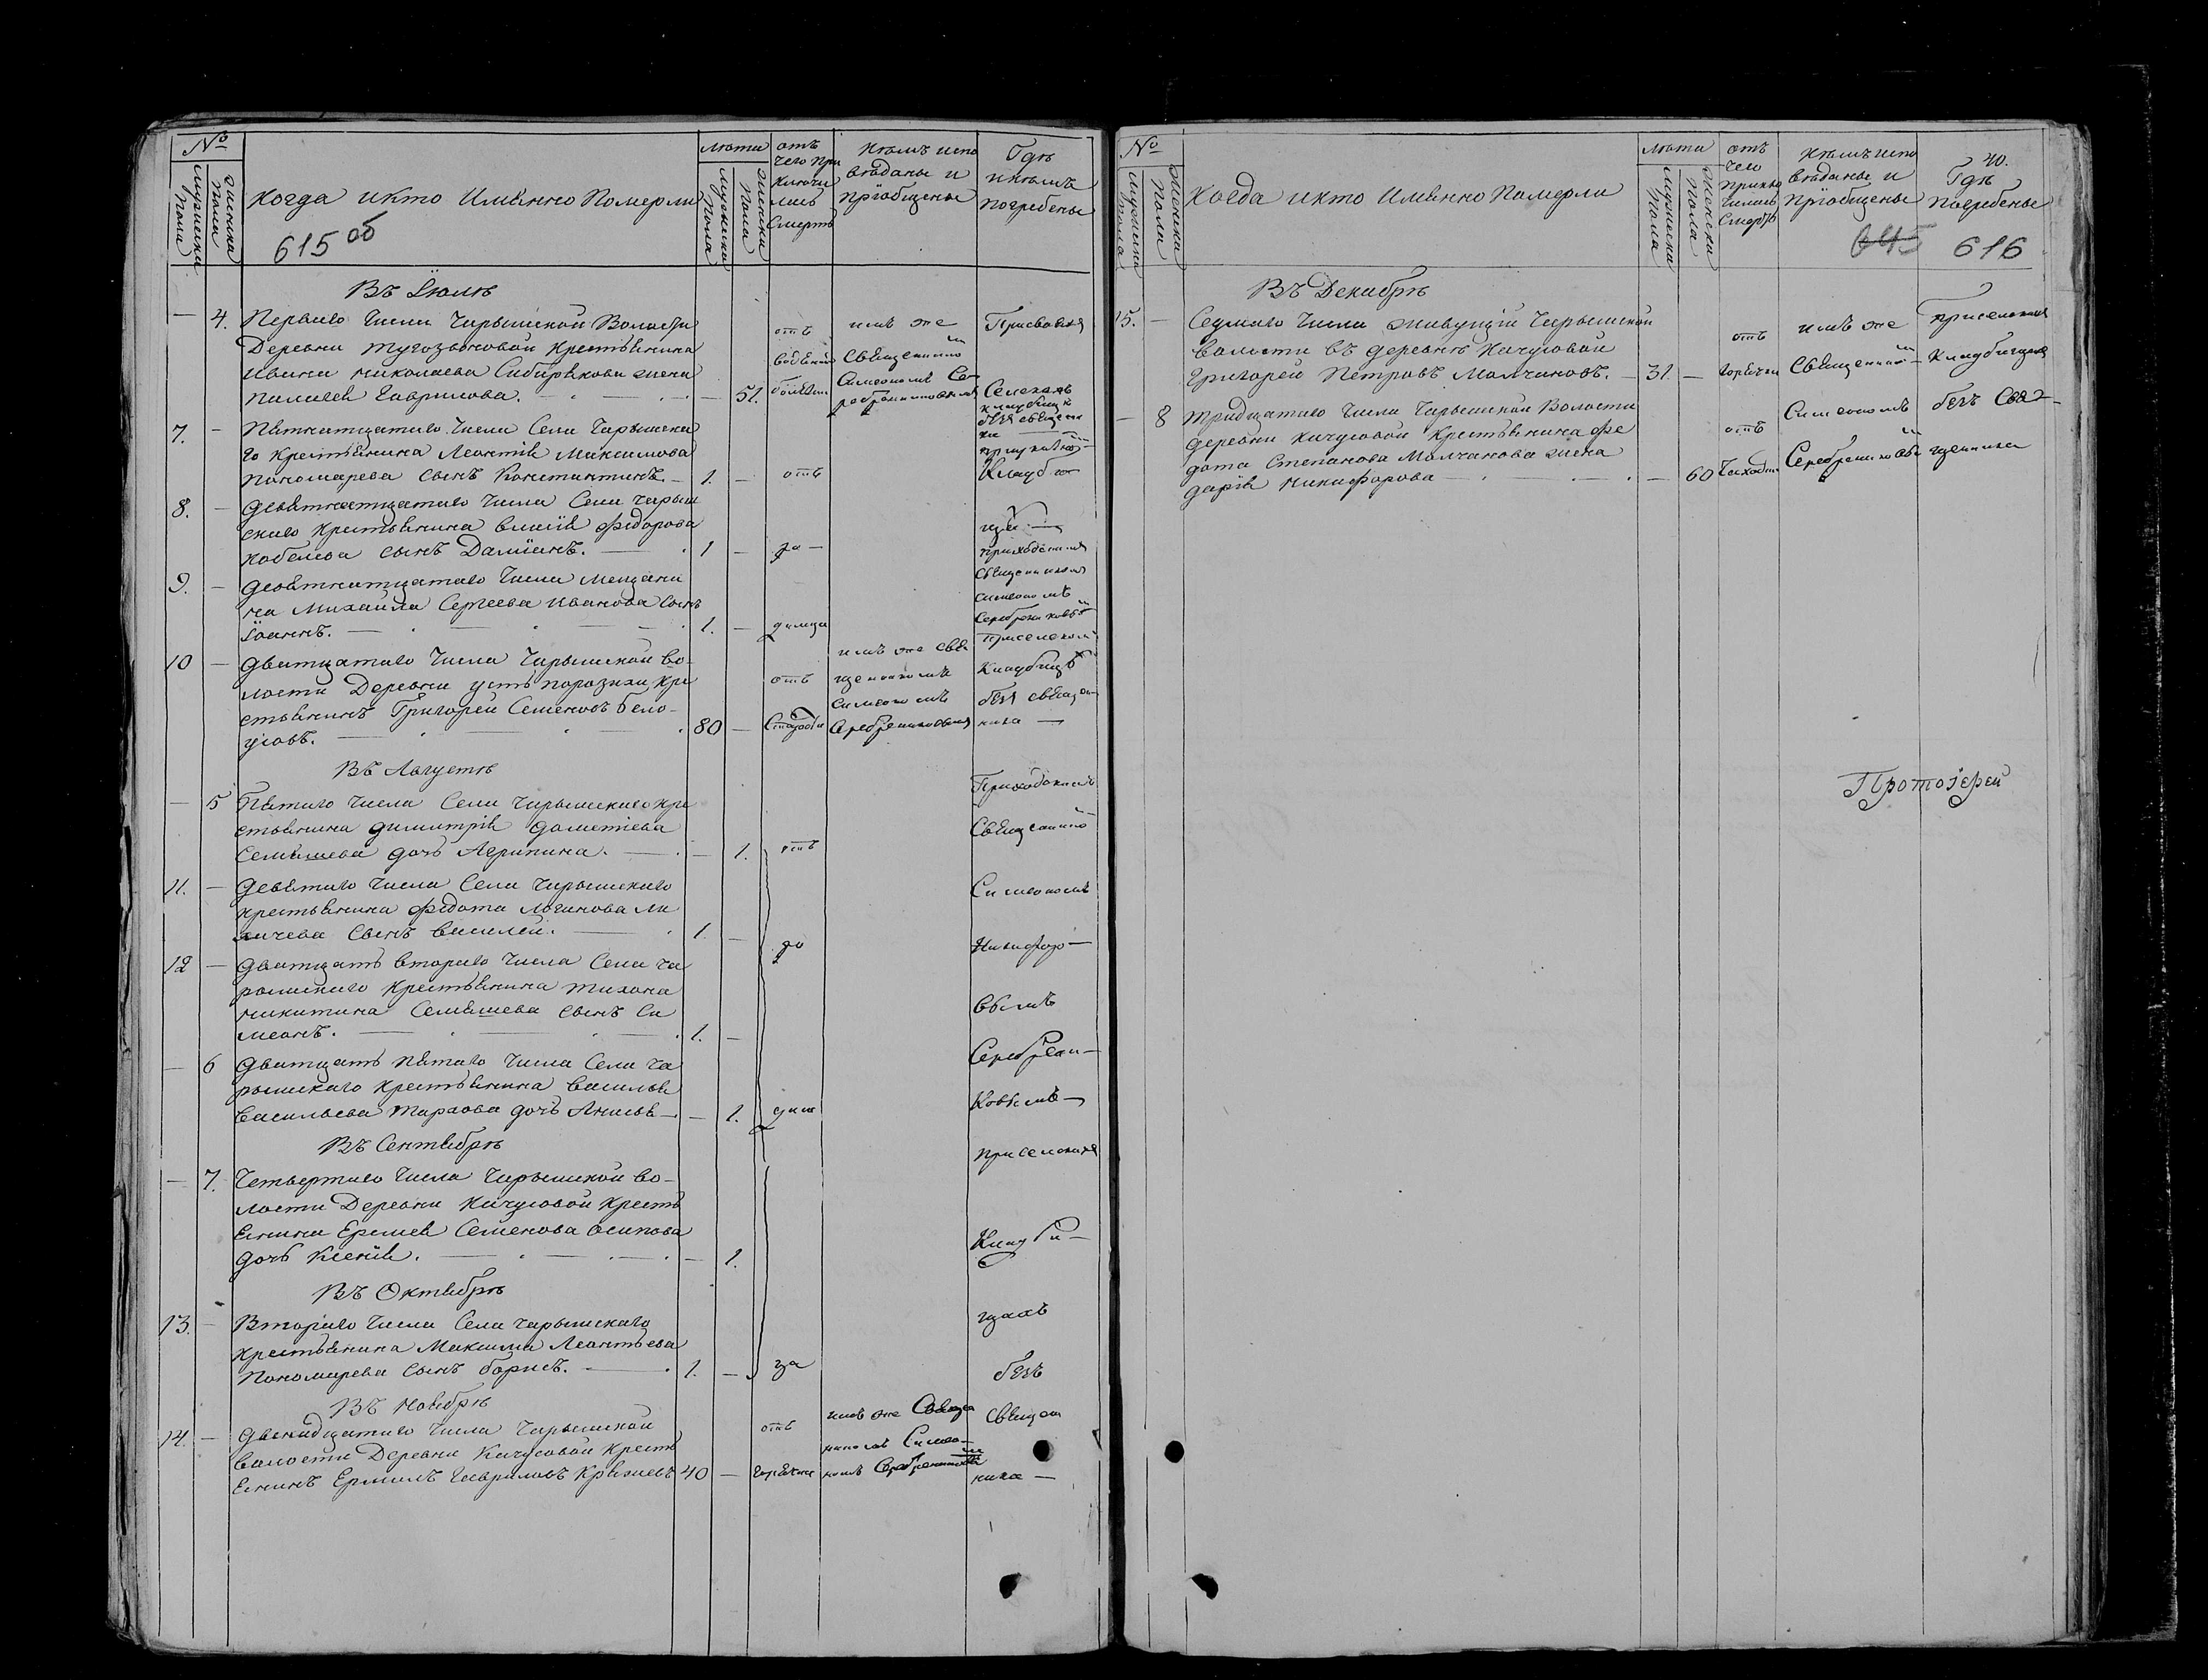 №
мужеска пола
женска пола
Когда и кто Имѣнно Померли
615 об
лѣта
мужеска пола
женска пола
отъ
чего при
ключи
лась
Смерть
Кѣмъ испо
вѣданы и
прiобщены
Гдѣ
и кѣмъ
погребены
Въ Iюлѣ
— 4. Перваго Числа Чарышской Волости
Деревни Тугозвоновой Крестьянина
Ивана Николаева Сибирякова жена
Пелагея Гаврилова. — 51.
отъ
водяной
болѣзни
имъ же
Священнико
Симеономъ Се
ребрениковымъ
Селскомъ
кладбищѣ
7. — Пятнатцатаго Числа Села Чарышска
го Крестьянина Леонтiя Максимова
Пономарева Сынъ Константинъ. — 1. —
отъ
Кладб
8. — Девятнатцатаго Числа Села Чарыш
скаго Крестьянина Федорова
Кобелева Сынъ Дамiанъ. — 1 —
ро —
приходскимъ
Священникомъ
Симеономъ
9. — Девятнатцатаго Числа Мещани
на Михаила Сергеева Иванова Сынъ
Iоаннъ. — 1. —
димца
10 — Дватцатаго Числа Чарышской Во-
лости Деревни усть порозихи, Кре
стьянинъ Григорей Семеновъ Бело-
усовъ. — 80 —
отъ
Старости
имъ же Свя
щенникомъ
Симеономъ
Серебрениковымъ
Кладбищѣ
безъ Священ
ника —
Въ Августѣ
— 5 Пятаго Числа Села Чарышскаго Кре
стьянина Димитрiя Дометiева
Семяшева дочь Агрипина. — 1.
отъ
Приходскимъ
Священнико
11. — Девятаго Числа Села Чарышскаго
Крестьянина Федота Логинова Ли
хачева Сынъ Василей. — 1. —
ро
Симеономъ
12 — Дватцать втораго Числа Села Ча
рышскаго Крестьянина Тихона
Никитина Семяшева Сынъ Си
меонъ. — 1. —
Никифоро —
вымъ
— 6 Дватцать пятаго Числа Села Ча
рышскаго Крестьянина Василья
Васильева Тархова дочь Анисья — 1.
Серебрен —
ковымъ —
Въ Сентябрѣ
— 7. Четвертаго Числа Чарышской Во-
лости Деревни Качусовой Кресть
янина Ермея Семенова Осипова
дочь Ксенiя. — 1.
Кладби —
щахъ
Въ Октябрѣ
13. — Втораго Числа Села Чарышскаго
Крестьянина Максима Леонтьева
Пономарева Сынъ Борисъ. — 1. —
за
безъ
Въ Ноябрѣ
14. — Двенадцатаго Числа Чарышской
Волости Деревни Качусовой Кресть
янинъ Ермилъ Гавриловъ 40 —
отъ
горячки
имъ же Священ
никомъ Симео
номъ Серебрениковы
Священ
ника —
№
мужеска пола
женска пола
Когда и кто Имѣнно Померли
лѣта
мужеска пола
женска пола
отъ
чего
приклю
чилась
Смерть
Кѣмъ испо
вѣданы и
Прiобщены
40.
Гдѣ
погребены
645 616
Въ Декабрѣ
15. — Седмаго Числа живущiй Чарышской
волости въ деревнѣ Качусовой
Григорей Петровъ Молчановъ. — 31. —
отъ
горячки
имъ же
Священник
приселскомъ
Кладбищѣ
— 8 Тридцатаго Числа Чарышской Волости
деревни Качусовой Крестьянина Фе
дота Степанова Молчанова жена
Дарiя Никифорова — 60
отъ
Чахотки
Симеономъ
Серебрениковы
безъ Свя
щенника
Протоiерей